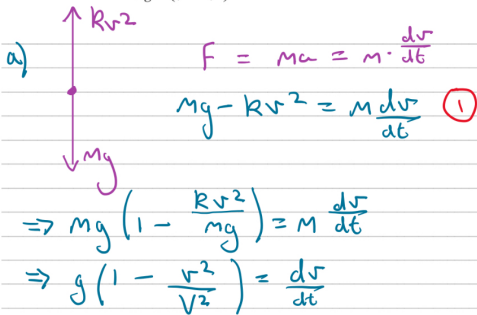 kv²
a)
F = ma = m · dv/dt
mg - kv² = m dv/dt ①
mg
⇒ mg (1 - kv²/mg) = m dv/dt
⇒ g (1 - v²/V²) = dv/dt